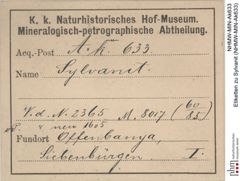 K. k. Naturhistorisches Hof-Museum.
Mineralogisch-petrographische Abtheilung.
Acq.-Post A.k. 633
Name Sylvanit.
V.d. N. 2365 M. 3017 (60/85)
neu 1605
Fundort Offenbanya,
Siebenbürgen I.
NHMW-MIN-Ak633
Etiketten zu Sylvanit (NHMW-MIN-Ak633)
nhm